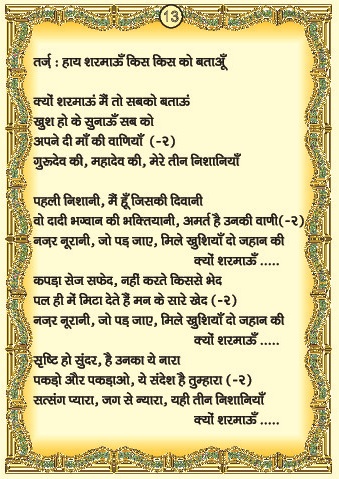 13
तर्ज़ : हाय शरमाऊँ किस किस को बताऊँ
क्यों शरमाऊं मैं तो सबको बताऊं
खुश हो के सुनाऊँ सब को
अपने दी माँ की वाणियाँ (-२)
गुरुदेव की, महादेव की, मेरे तीन निशानियाँ
पहली निशानी, मैं हूँ जिसकी दिवानी
वो दादी भगवान की भक्तियानी, अमर्त है उनकी वाणी(-२)
नज़र नूरानी, जो पड़ जाए, मिले खुशियाँ दो जहान की
क्यों शरमाऊँ .....
कपड़ा सेज सफेद, नहीं करते किससे भेद
पल ही में मिटा देते हैं मन के सारे खेद (-२)
नज़र नूरानी, जो पड़ जाए, मिले खुशियाँ दो जहान की
क्यों शरमाऊँ .....
सृष्टि हो सुंदर, है उनका ये नारा
पकड़ो और पकड़ाओ, ये संदेश है तुम्हारा (-२)
सत्संग प्यारा, जग से न्यारा, यही तीन निशानियाँ
क्यों शरमाऊँ .....